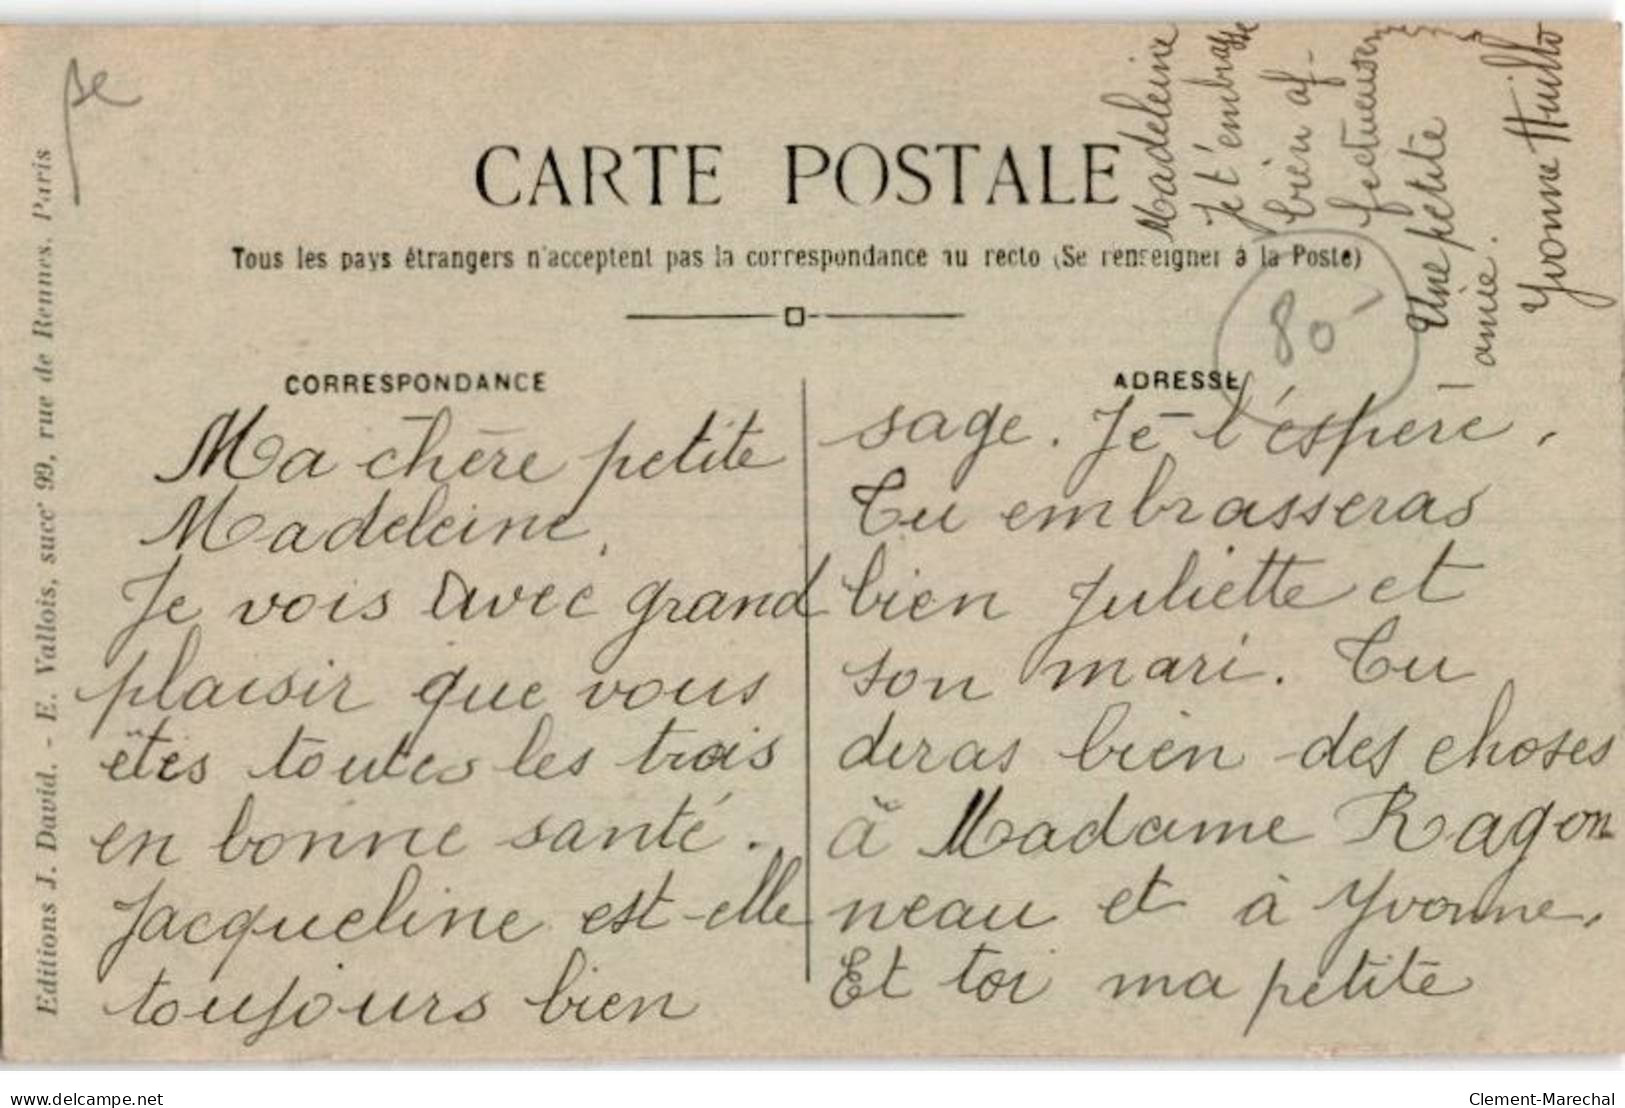 CARTE POSTALE
Tous les pays étrangers n'acceptent pas la correspondance au recto (Se renseigner à la Poste)
CORRESPONDANCE
Ma chère petite
Madeleine,
Je vois avec grand
plaisir que vous
êtes toutes les trois
en bonne santé.
Jacqueline est-elle
toujours bien
ADRESSE
sage. Je l'espère.
Tu embrasseras
bien Juliette et
son mari. Tu
diras bien des choses
à Madame Ragon
neau et à Yvonne.
Et toi ma petite
Madeleine
Je t'embrasse
bien af-
fectueusem
Une petite
amie.
Yvonne
80
Editions J. David. - E. Vallois, succ' 99, rue de Rennes. Paris
delcampe.net
Clement-Marechal